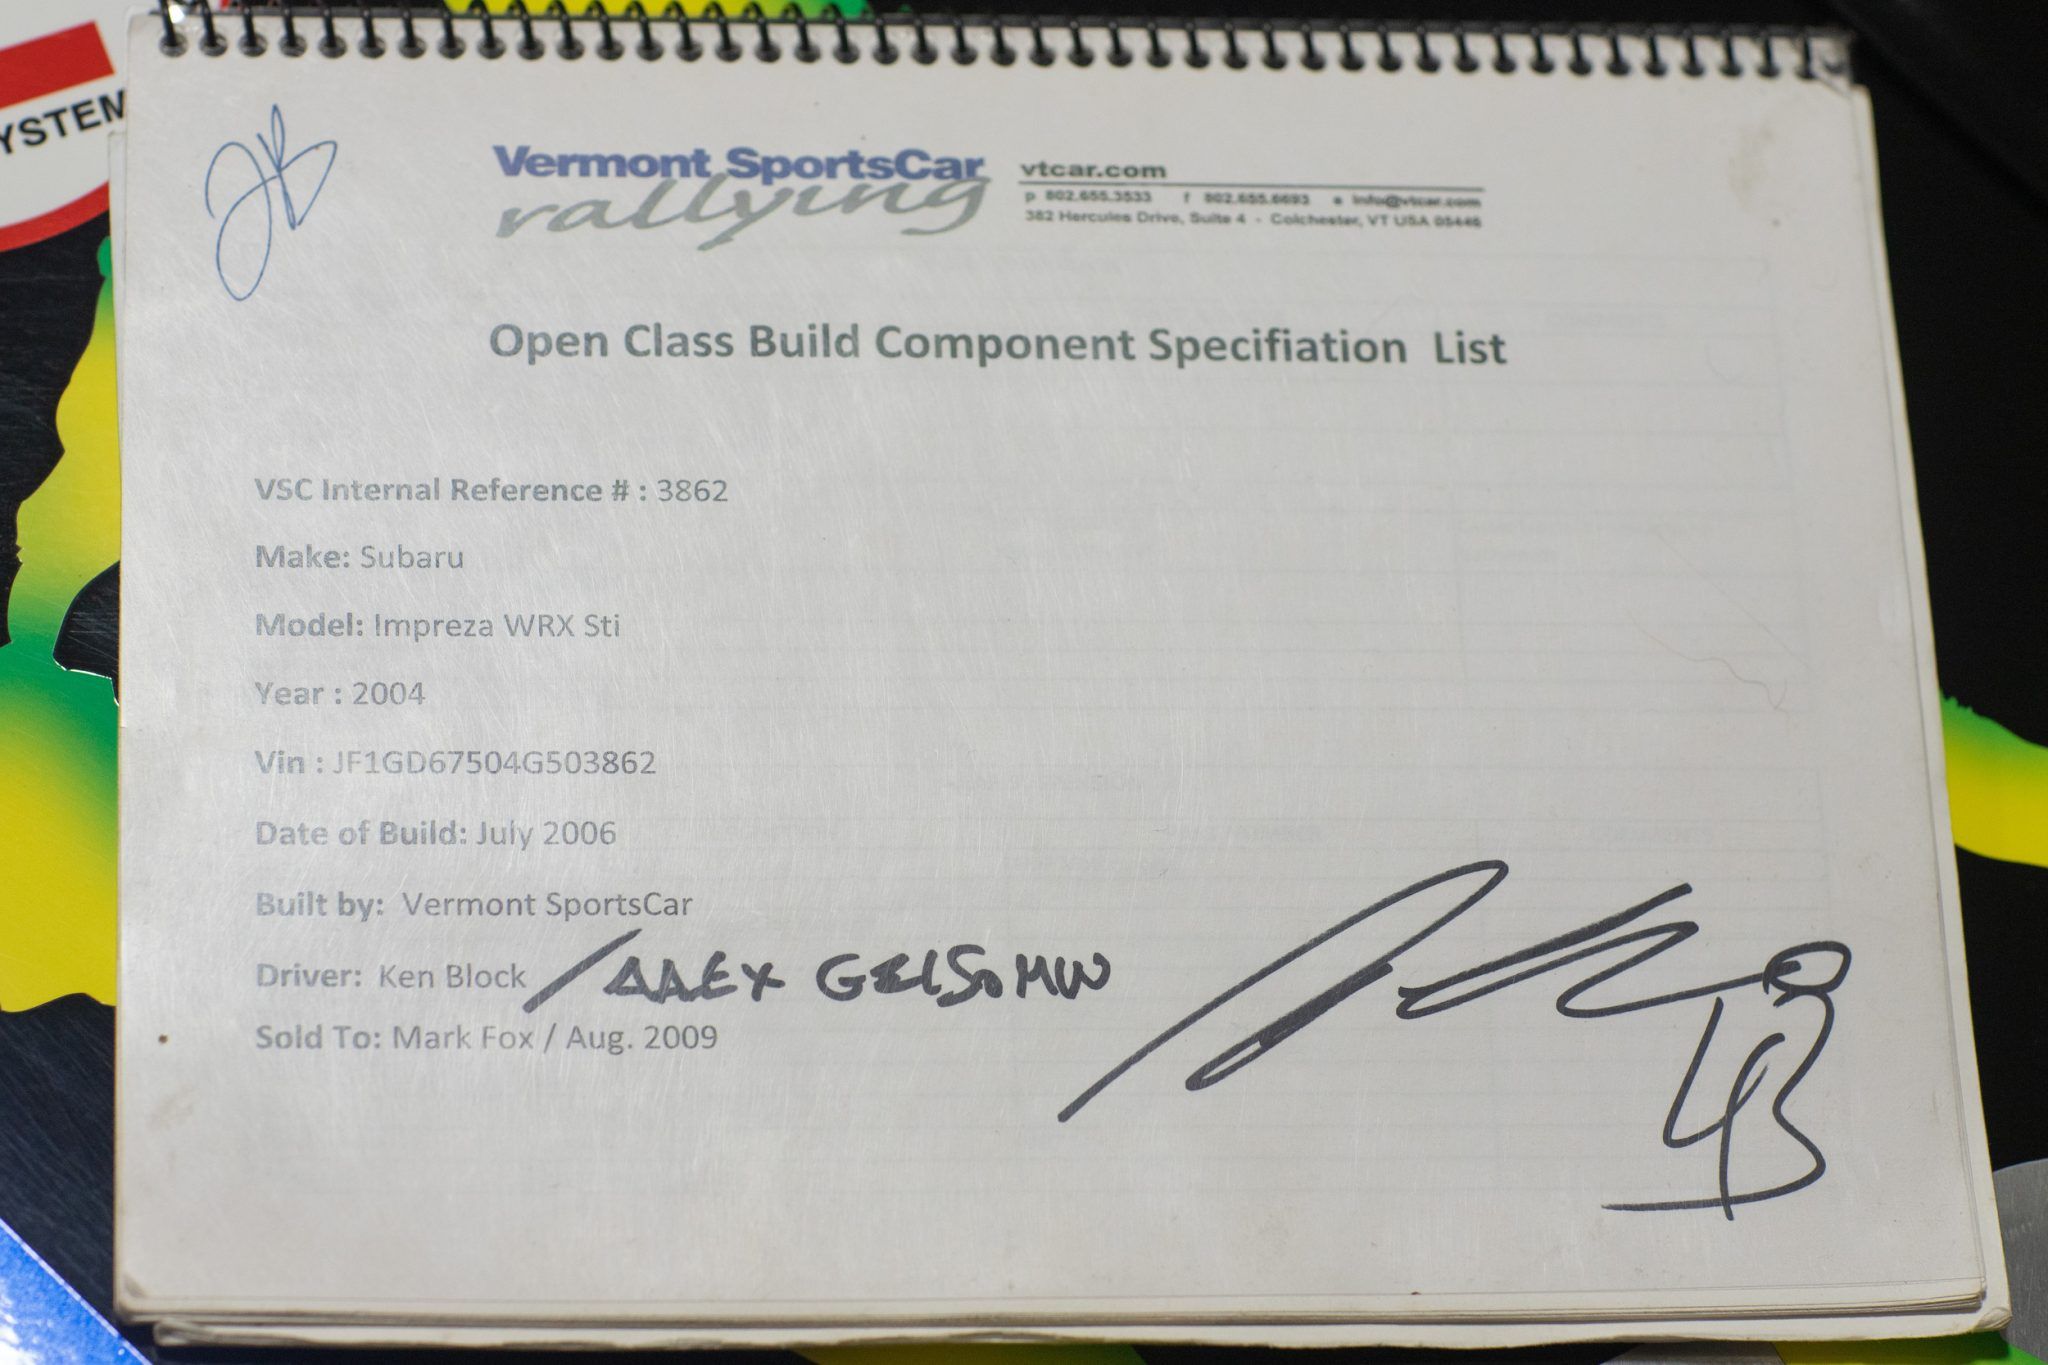 YSTEM
Vermont SportsCar
rallying
vtcar.com
p 802.655.3533 f 802.655.6693 e info@vtcar.com
382 Hercules Drive, Suite 4 - Colchester, VT USA 05446
Open Class Build Component Specifiation List
VSC Internal Reference # : 3862
Make: Subaru
Model: Impreza WRX Sti
Year : 2004
Vin : JF1GD67504G503862
Date of Build: July 2006
Built by: Vermont SportsCar
Driver: Ken Block / ALEX GELSOMINO
Sold To: Mark Fox / Aug. 2009
43